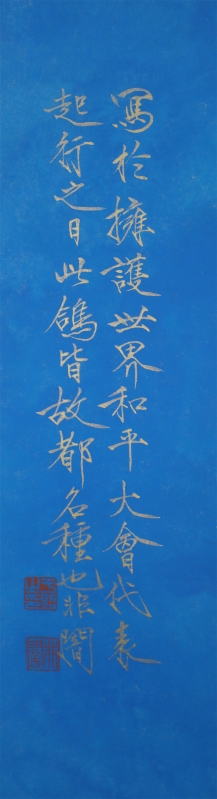 写於擁護世界和平大會代表
起行之日此鴿皆故都名種也非闇